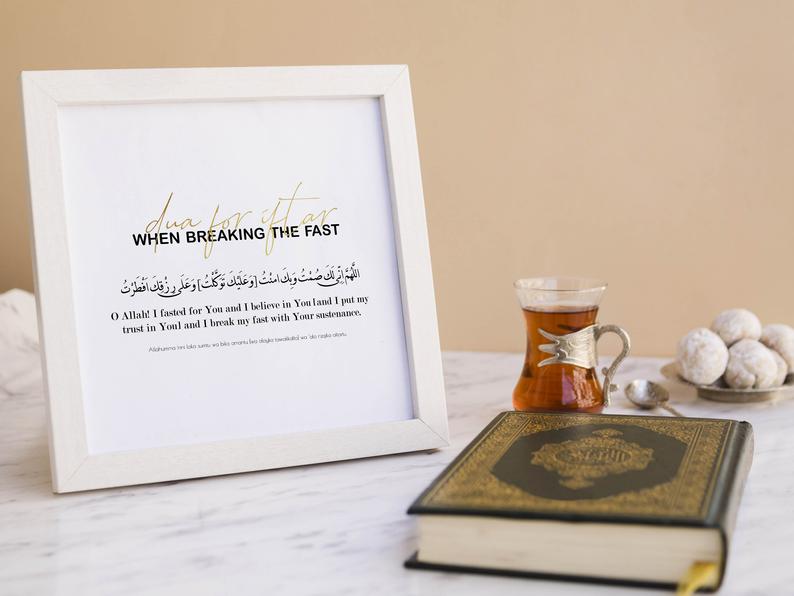 dua for iftar
WHEN BREAKING THE FAST
اللَّهُمَّ اِنِّى لَكَ صُمْتُ وَبِكَ امنْتُ [وَعَلَيْكَ تَوَكَّلْتُ] وَعَلَى رِزْقِكَ اَفْطَرْتُ
O Allah! I fasted for You and I believe in You [and I put my
trust in You] and I break my fast with Your sustenance.
Allahumma inni laka sumtu wa bika aamantu [wa alayka tawakkaltu] wa 'ala rizqika aftartu.